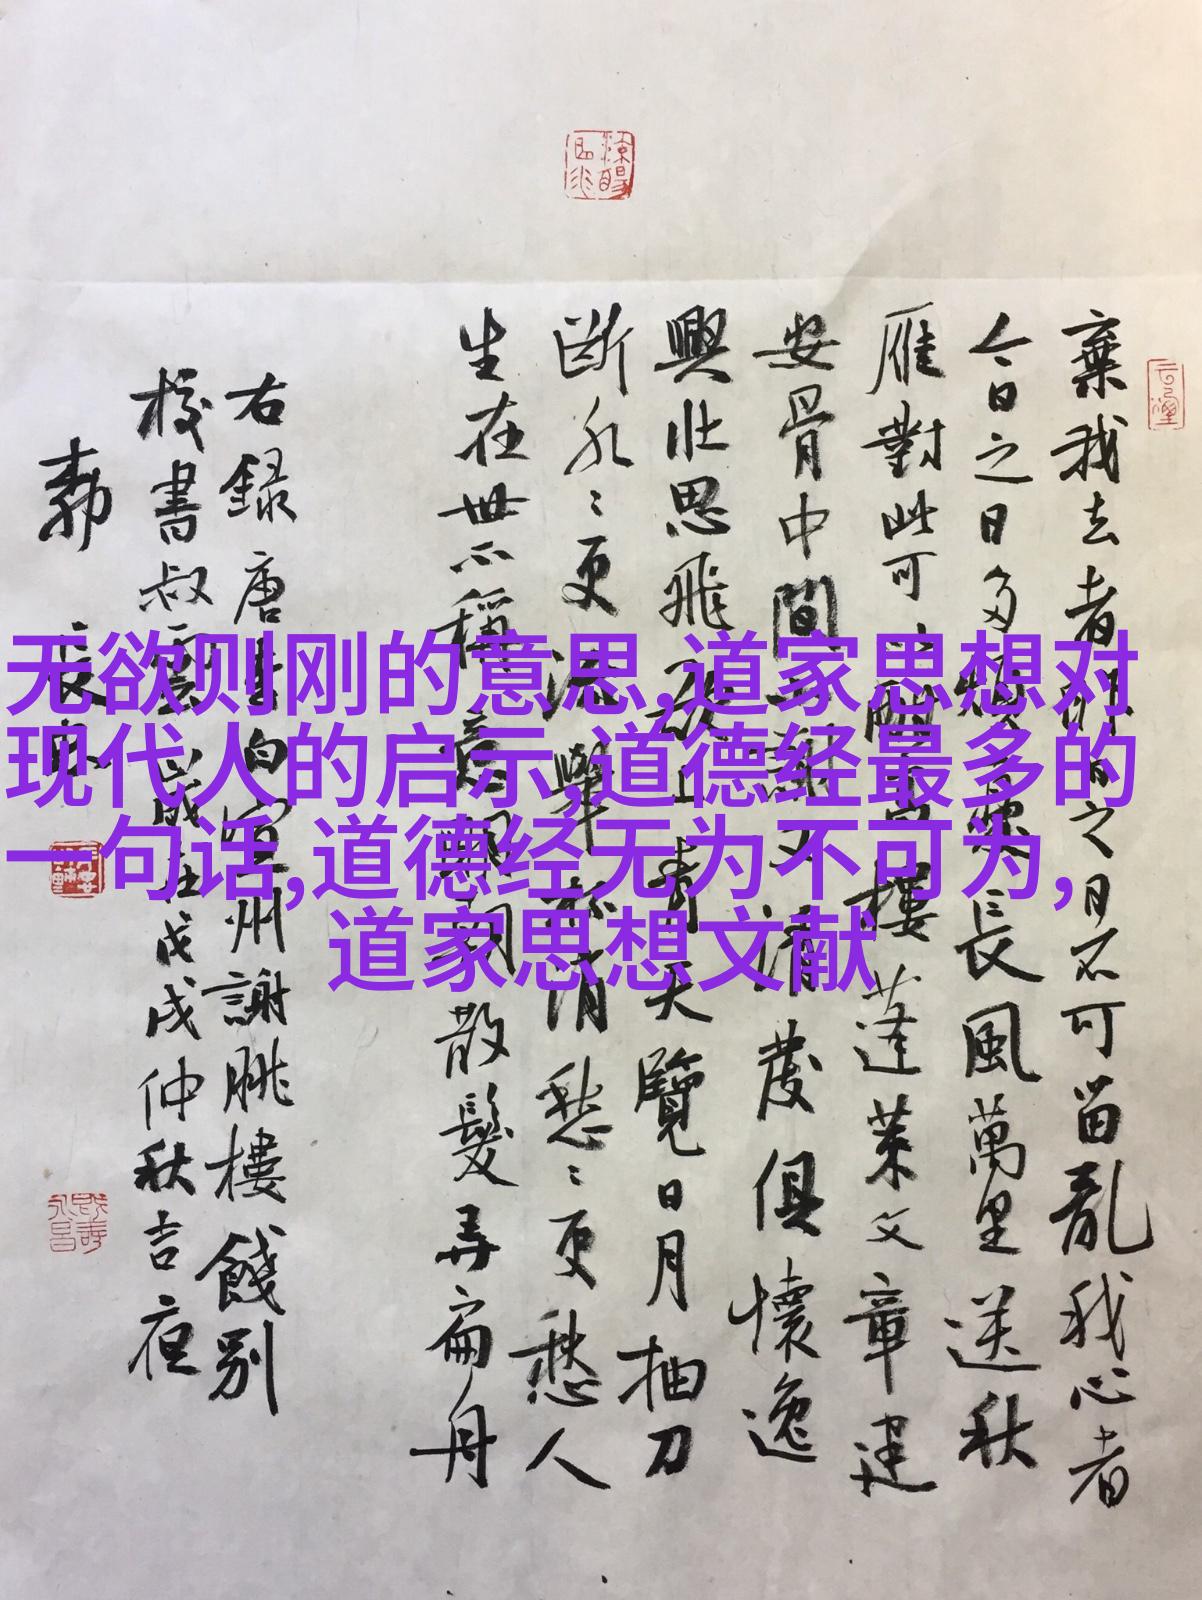 无欲则刚的意思,道家思想对
现代人的启示,道德经最多的
一句话,道德经无为不可为,
道家思想文献
棄我去者昨日之日不可留亂我心者
今日之日多煩憂長風萬里送秋
雁對此可以酣高樓蓬萊文章建
安骨中間小謝又清發俱懷逸
興壯思飛欲上青天覽日月抽刀
斷水〻更流舉杯消愁〻更愁人
生在世不稱意明朝散髮弄扁舟
右錄唐李白宣州謝朓樓餞別
校書叔雲歲在戊戌仲秋吉夜